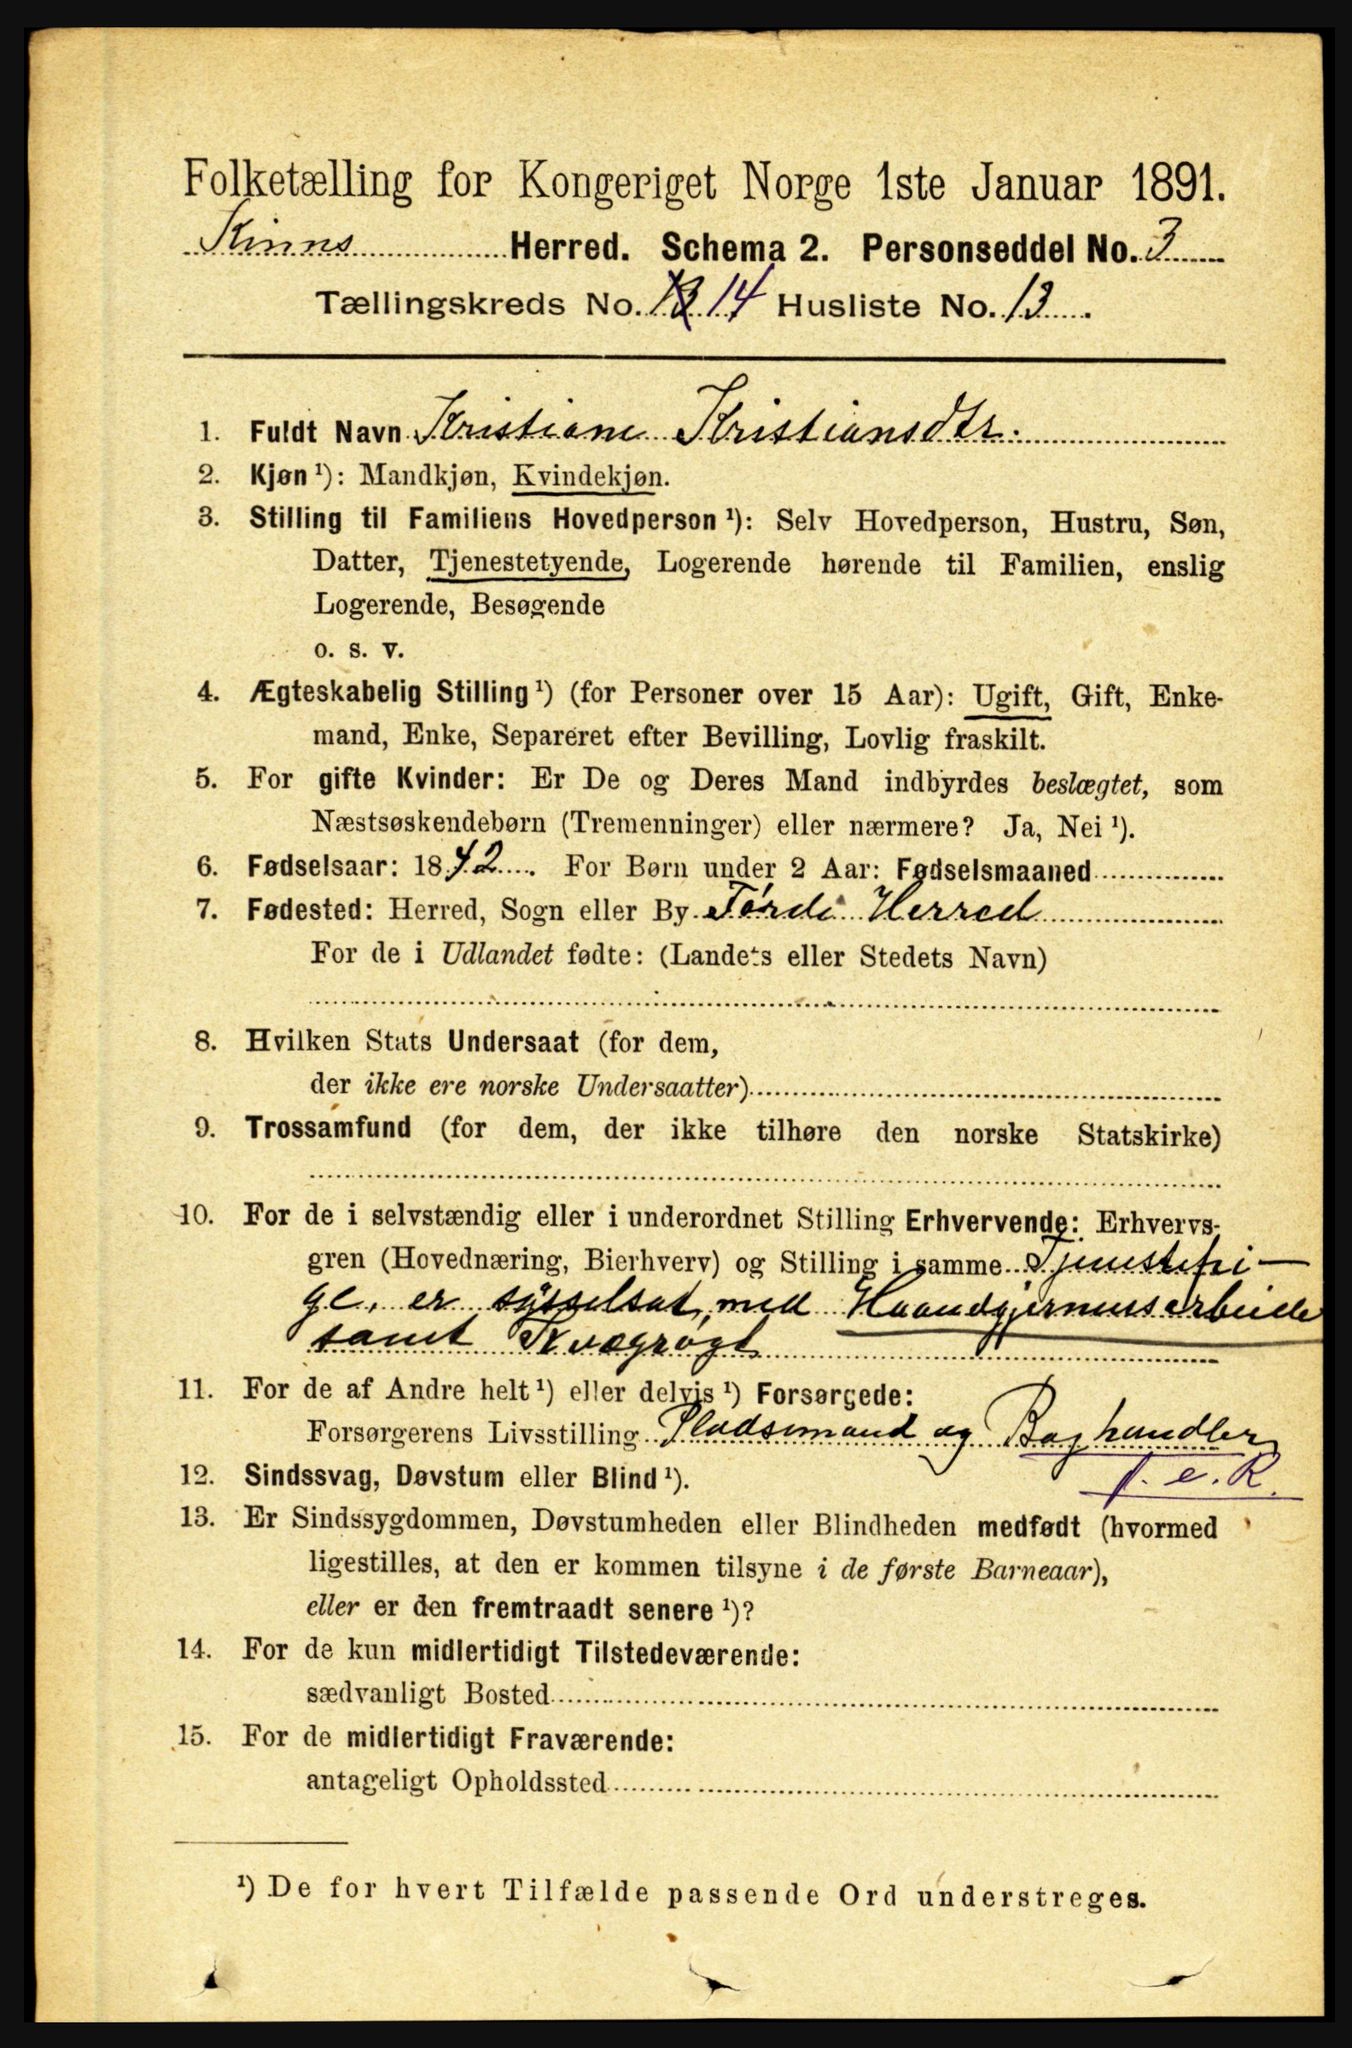 Folketælling for Kongeriget Norge 1ste Januar 1891.
Kinns Herred. Schema 2. Personseddel No. 3
Tællingskreds No. 13 14 Husliste No. 13
1. Fuldt Navn Kristiane Kristiansdtr.
2. Kjøn ¹): Mandkjøn, Kvindekjøn.
3. Stilling til Familiens Hovedperson ¹): Selv Hovedperson, Hustru, Søn,
Datter, Tjenestetyende, Logerende hørende til Familien, enslig
Logerende, Besøgende
o. s. v.
4. Ægteskabelig Stilling ¹) (for Personer over 15 Aar): Ugift, Gift, Enke-
mand, Enke, Separeret efter Bevilling, Lovlig fraskilt.
5. For gifte Kvinder: Er De og Deres Mand indbyrdes beslægtet, som
Næstsøskendebørn (Tremenninger) eller nærmere? Ja, Nei ¹).
6. Fødselsaar: 1842. For Børn under 2 Aar: Fødselsmaaned
7. Fødested: Herred, Sogn eller By Førde Herred
For de i Udlandet fødte: (Landets eller Stedets Navn)
8. Hvilken Stats Undersaat (for dem,
der ikke ere norske Undersaatter)
9. Trossamfund (for dem, der ikke tilhøre den norske Statskirke)
10. For de i selvstændig eller i underordnet Stilling Erhvervende: Erhvervs-
gren (Hovednæring, Bierhverv) og Stilling i samme Tjenestepi-
ge, er sysselsat med Haandgjerningsarbeide
samt Kvægrøgt
11. For de af Andre helt ¹) eller delvis ¹) Forsørgede:
Forsørgerens Livsstilling Pladsmand og Baghandler
f. e. R.
12. Sindssvag, Døvstum eller Blind ¹).
13. Er Sindssygdommen, Døvstumheden eller Blindheden medfødt (hvormed
ligestilles, at den er kommen tilsyne i de første Barneaar),
eller er den fremtraadt senere ¹)?
14. For de kun midlertidigt Tilstedeværende:
sædvanligt Bosted
15. For de midlertidigt Fraværende:
antageligt Opholdssted
¹) De for hvert Tilfælde passende Ord understreges.